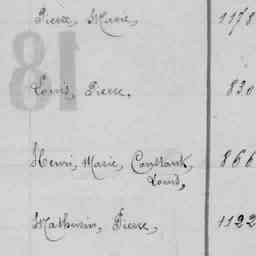 Pierre, Marie, 1178
Louis, Pierre, 830
Henri, Marie, Constant, 866
Louis,
Mathurin, Pierre, 1122